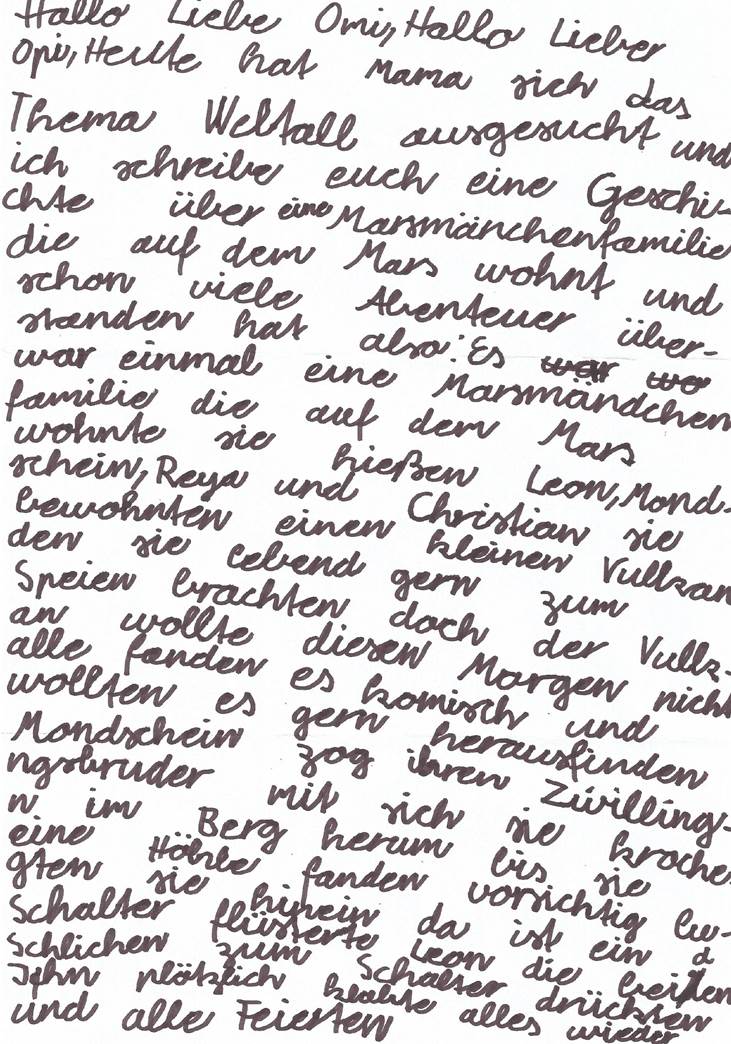 Hallo Liebe Omi, Hallo Lieber
Opi, Heute hat Mama sich das
Thema Weltall ausgesucht und
ich schreibe euch eine Geschi-
chte über eine Marsmänchenfamilie
die auf dem Mars wohnt und
schon viele Abenteuer über-
standen hat also: Es war wo
war einmal eine Marsmändchen
familie die auf dem Mars
wohnte sie hießen Leon, Mond-
schein, Reya und Christian sie
bewohnten einen kleinen Vulkan
den sie lebend gern zum
Speien brachten doch der Vulk-
an wollte diesen Morgen nicht
alle fanden es komisch und
wollten es gern herausfinden
Mondschein zog ihren Zwilling-
ngsbruder mit sich sie kroche
n im Berg herum bis sie
eine Höhle fanden vorsichtig lu-
gten sie hinein da ist ein
Schalter flüsterte Leon die beiden
Schlichen zum Schalter drückten
Ihn plötzlich klabte alles wieder
und alle Feierten